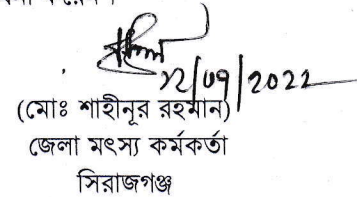 ১২/০৭/2022
(মোঃ শাহীনূর রহমান)
জেলা মৎস্য কর্মকর্তা
সিরাজগঞ্জ